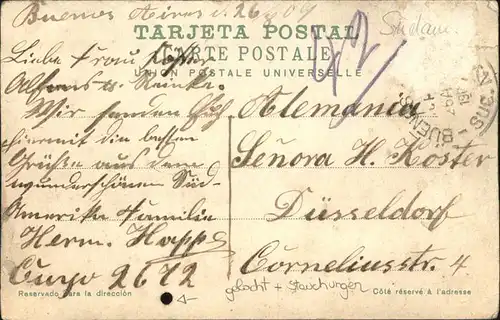 Buenos Aires d. 26 09
Südam.
TARJETA POSTAL
CARTE POSTALE
UNION POSTALE UNIVERSELLE
42
Liebe Frau Koster
Alfons u. Rancke.
Wir senden Euch
hiermit die besten
Grüße aus dem
wunderschönen Süd-
Amerika Familie
Herm. Happ
Cuyo 2672
Alemania
Señora H. Koster
Düsseldorf
Corneliusstr. 4
BUENOS
gelocht + Stauchungen
Reservado para la dirección
Côté réservé à l'adresse